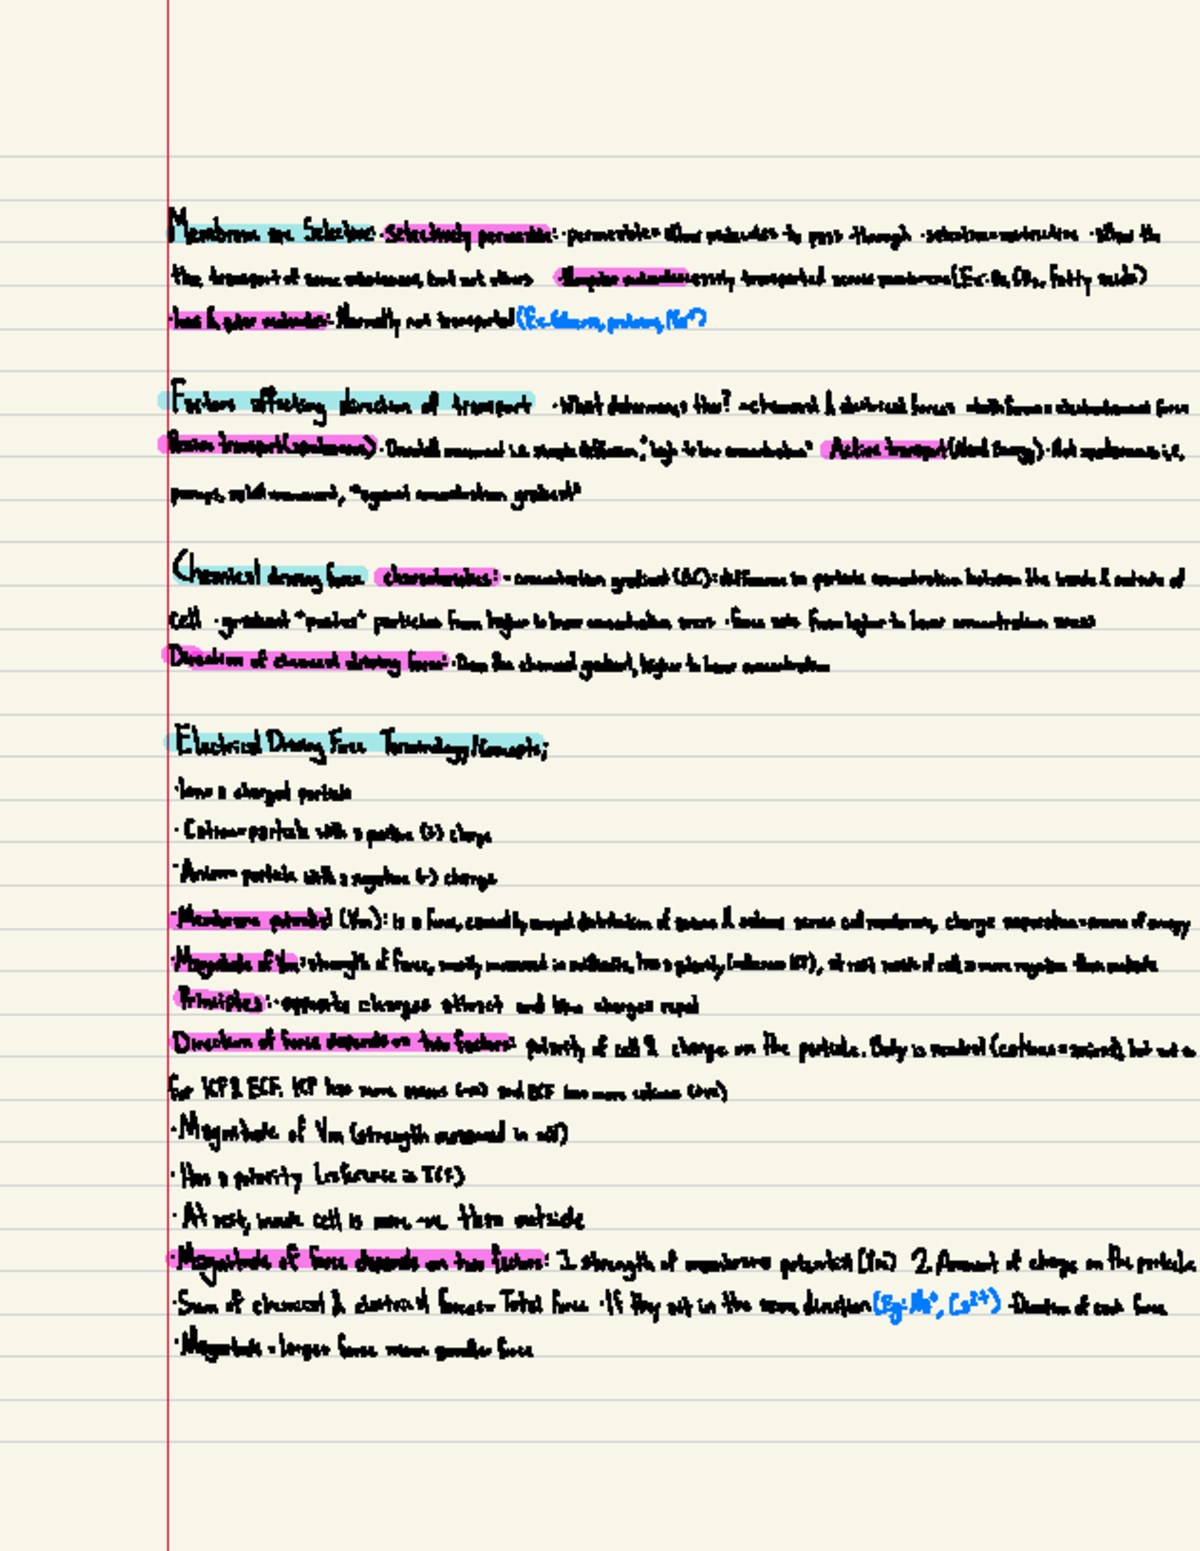 Membrane are Selective · Selectively permeable: · permeable = allow molecules to pass through · selective = restrictive · allow the
the transport of some substances, but not others · Nonpolar molecules easily transported across membrane (Ex: O₂, CO₂, fatty acids)
· polar molecules: Normally not transported (Ex. Glucose, proteins, Na⁺)
Factors affecting direction of transport · What determines this? chemical & electrical forces electrochemical force
Passive transport (spontaneous) · Downhill movement i.e. simple diffusion, "high to low concentration" Active transport (Need Energy) · Not spontaneous i.e,
pumps, uphill movement, "against concentration gradient"
Chemical driving force characteristics: · concentration gradient (ΔC): difference in particle concentration between the inside & outside of
cell · gradient "pushes" particles from higher to lower concentration areas · force acts from higher to lower concentration areas
Direction of chemical driving force: · Down the chemical gradient, higher to lower concentration
Electrical Driving Force Terminology/Concepts;
· Ion = a charged particle
· Cation = particle with a positive (+) charge
· Anion = particle with a negative (-) charge
· Membrane potential (Vm): is a force, caused by unequal distribution of anions & cations across cell membrane, charge separation = source of energy
· Magnitude of Vm: strength of force, usually measured in millivolts, has a polarity (reference ICF), at rest inside of cell is more negative than outside
Principles: · opposite charges attract and like charges repel
Direction of force depends on two factors: polarity of cell & charge on the particle. Body is neutral (cations = anions), but not so
for ICF & ECF. ICF has more anions (-ve) and ECF has more cations (+ve)
· Magnitude of Vm (strength measured in mV)
· Has a polarity (reference is ICF)
· At rest, inside cell is more -ve than outside
· Magnitude of force depends on two factors: 1. strength of membrane potential (Vm) 2. Amount of charge on the particle
· Sum of chemical & electrical forces = Total force · If they act in the same direction (Eg: Na⁺, Ca²⁺) · Direction of each force
· Magnitude = larger force minus smaller force